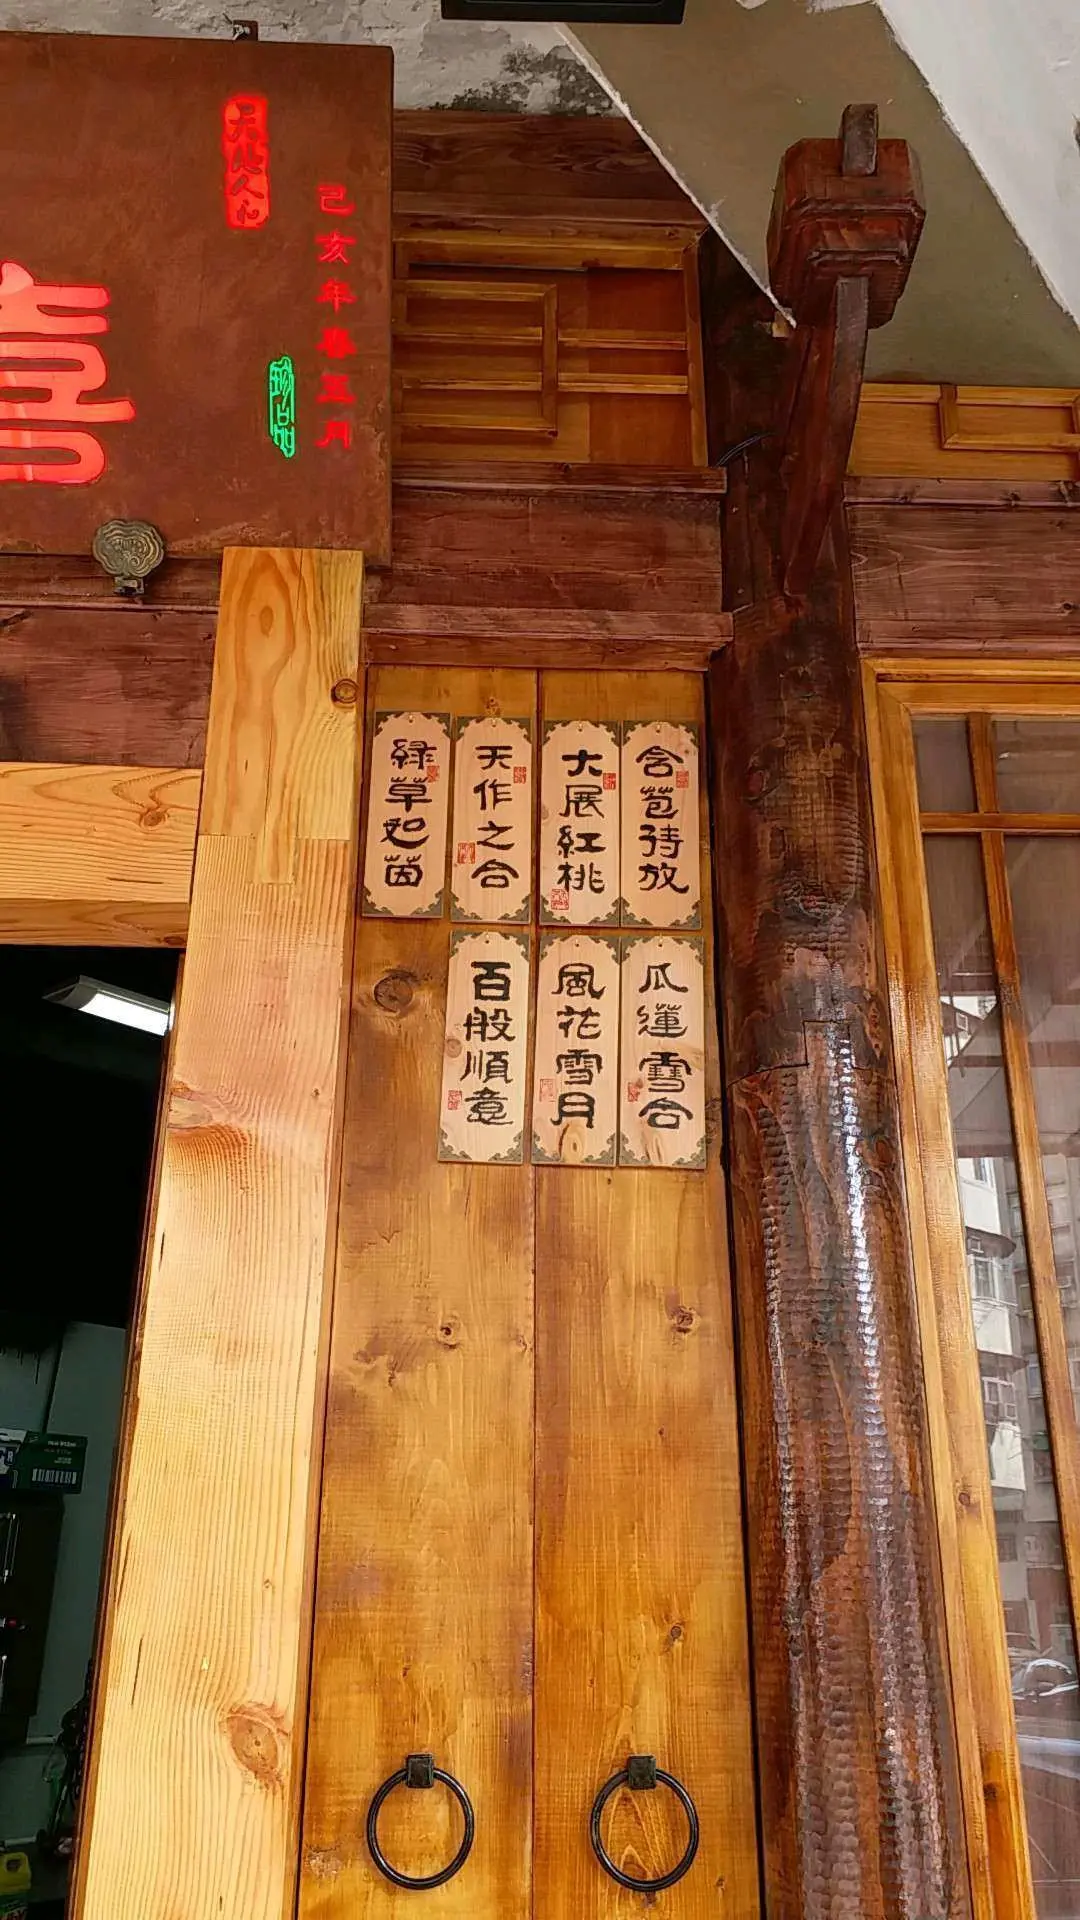 喜
天地人和
己亥年春五月
珍品
含苞待放
大展紅桃
天作之合
綠草如茵
瓜蓮雪合
風花雪月
百般順意